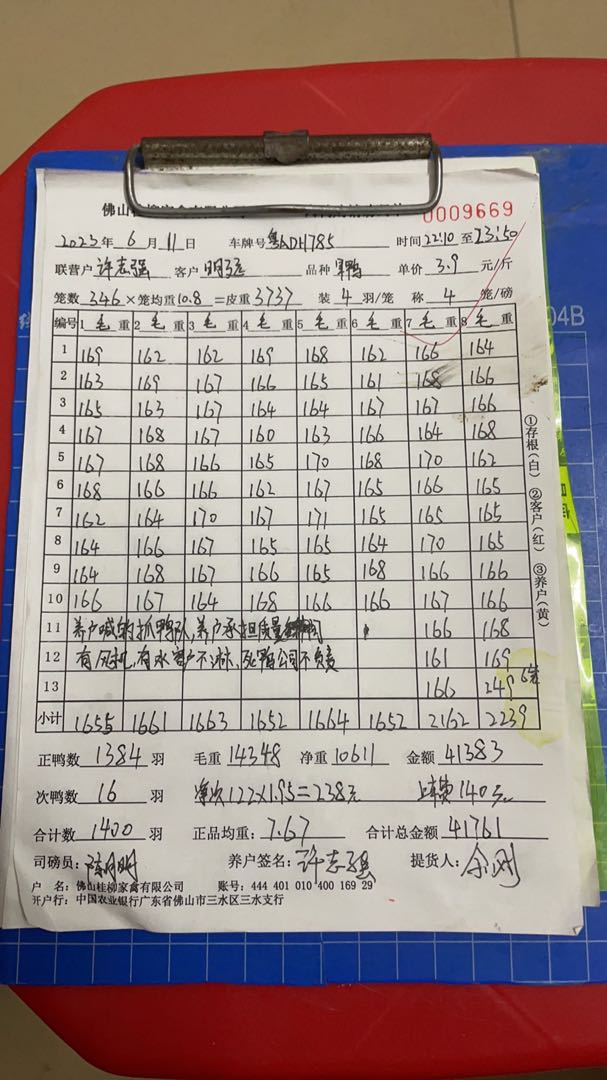 0009669
2023年 6月 11日 车牌号 粤ADH785 时间 22:10 至 23:50
联营户 许志强 客户 品种 单价 3.9 元/斤
笼数 346 × 笼均重 10.8 = 皮重 3737 装 4 羽/笼 称 4 笼/磅
编号 1 毛 重 2 毛 重 3 毛 重 4 毛 重 5 毛 重 6 毛 重 7 毛 重 8 毛 重
1 169 162 162 169 168 162 166 164
2 163 169 167 166 165 161 168 166
3 165 163 167 164 164 167 167 166
4 167 168 167 160 163 166 164 168
5 167 168 166 165 170 168 170 162
6 168 166 166 162 167 165 166 165
7 162 164 170 167 171 165 165 165
8 164 166 167 165 165 164 170 165
9 164 168 167 166 165 168 166 166
10 166 167 164 168 166 166 167 166
11 养户喊的抓鸭队,养户承担质量 166 168
12 有风机,有水客户不淋,死鸭公司不负责 161 169
13 166 249 6笼
小计 1655 1661 1663 1652 1664 1652 2162 2239
正鸭数 1384 羽 毛重 14348 净重 10611 金额 41383
次鸭数 16 羽 净次122×1.95=238元 上车费140元
合计数 1400 羽 正品均重: 7.67 合计总金额 41761
司磅员: 养户签名: 许志强 提货人: 余刚
户 名: 佛山桂柳家禽有限公司 账号: 444 401 010 400 169 29
开户行: 中国农业银行广东省佛山市三水区三水支行
①存根(白) ②客户(红) ③养户(黄)
04B